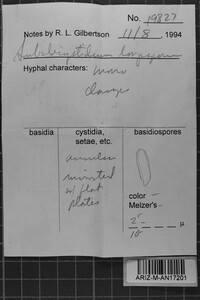 No. 19827
Notes by R. L. Gilbertson 11/8, 1994
Hyphal characters: mono
clamps
basidia
cystidia, setae, etc.
basidiospores
w/ flat
plates
color –
Melzer's –
μ
ARIZ-M-AN17201